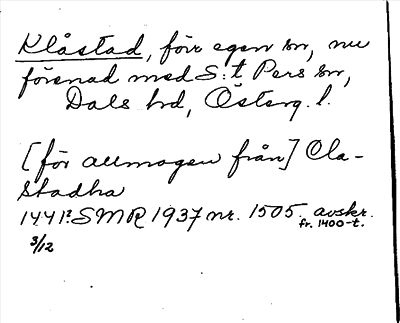 Klåstad, förr egen sn, nu
förenad med S:t Pers sn,
Dals hd, Österg. l.
[för allmogen från] Cla-
stadha
1441 3/12 SMR 1937 nr. 1505. avskr.
fr. 1400-t.